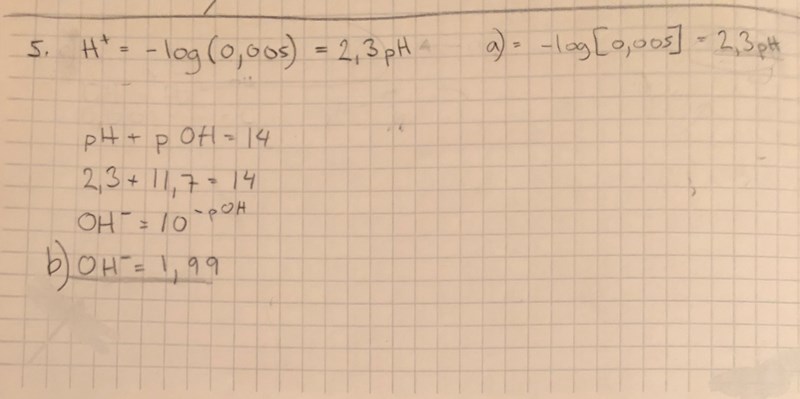 5. H⁺ = -log(0,005) = 2,3 pH a) = -log[0,005] = 2,3 pH
pH + pOH = 14
2,3 + 11,7 = 14
OH⁻ = 10⁻ᵖᴼᴴ
b) OH⁻ = 1,99